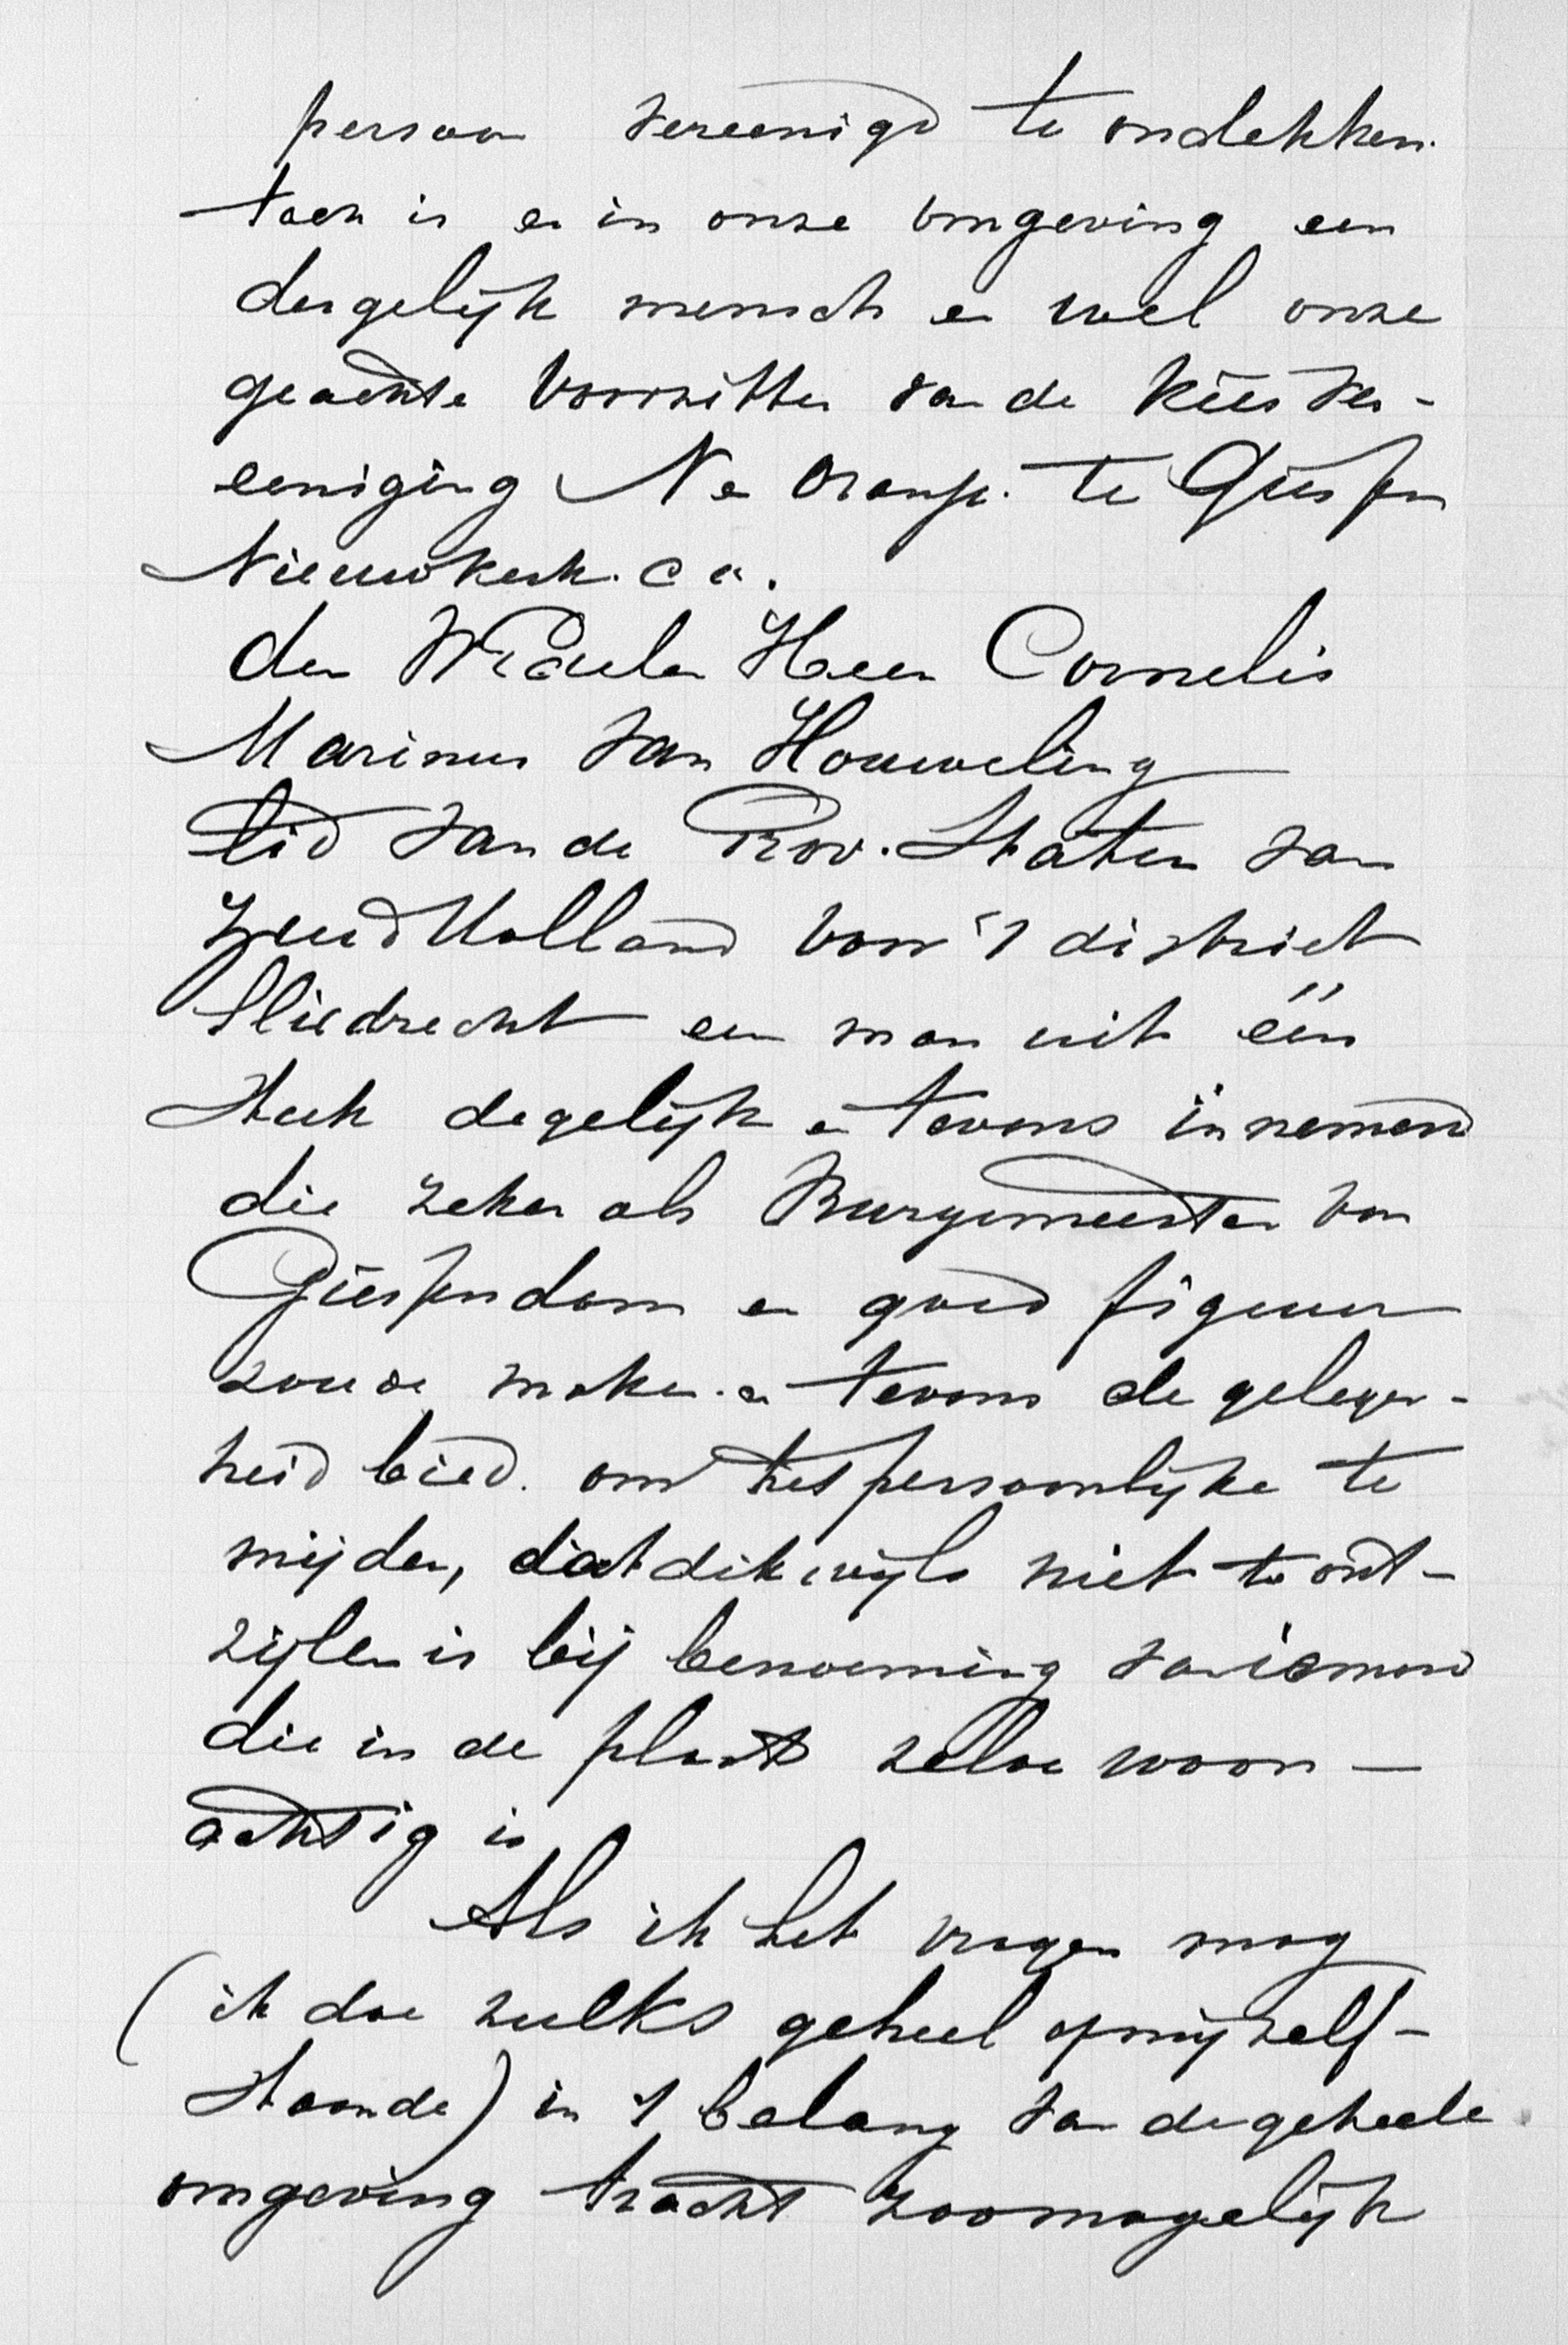 persoon vereenigd te ondekken.
toch is er in onze omgeving een
dergelijk mensch en wel onze
geachte Voorzitter van de Kies ver-
eeniging N en Oranje. te Giessen
Nieuwkerk. c a.
den WEdelen Heer Cornelis
Marinus van Houweling
lid van de Prov. Staten van
Zuid Holland voor 't district
Sliedrecht een man uit één
stuk degelijk en tevens innemend
die zeker als Burgemeester van
Giessendam en goed figuur
zoude maken. en tevens de gelegen-
heid bied. om het persoonlijke te
mijden, dat dikwijls niet te ont-
zijlen is bij benoeming van iemand
die in de plaats zelve woon-
achtig is
Als ik het vragen mag
(ik doe zulks geheel op mij zelf-
staande) in 't belang van de geheele
omgeving tracht zoomogelijk